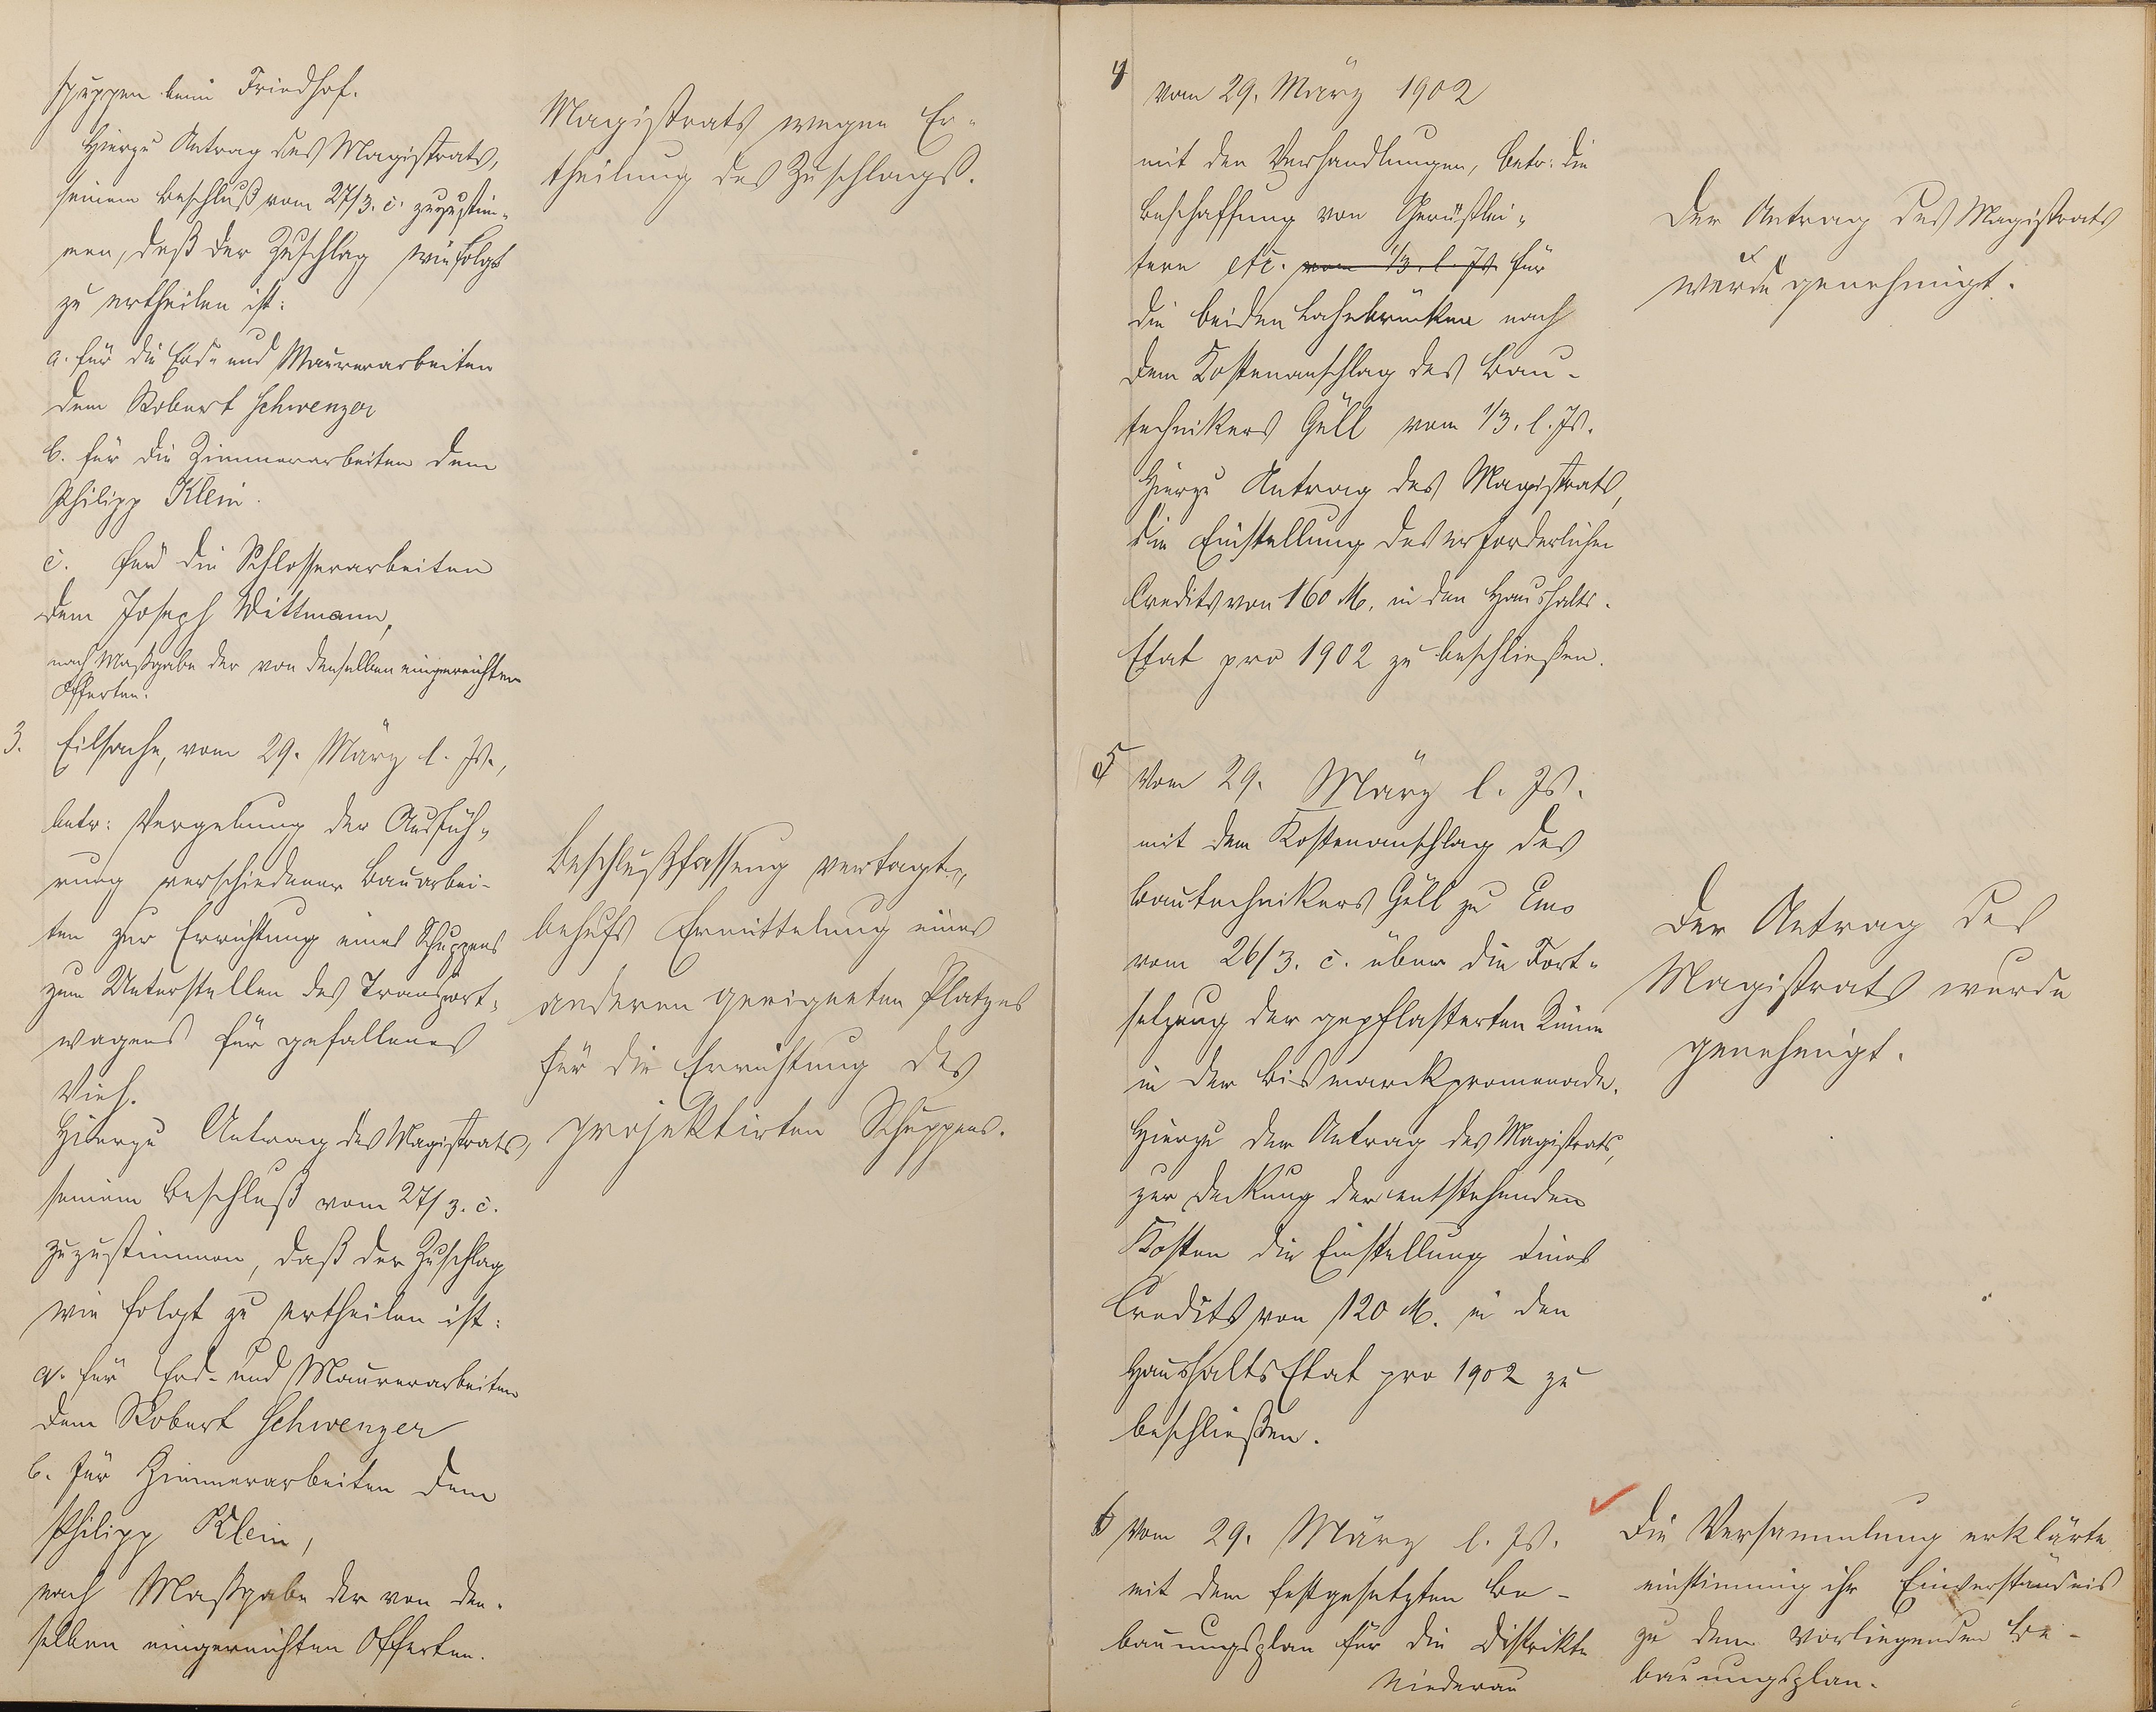 schuppen beim Friedhof.
Hierzu Antrag des Magistrats,
seinem Beschluß vom 27/3. c. zuzustim-
men, daß der Zuschlag wie folgt
zu ertheilen ist:
a. für die Erd- und Maurerarbeiten
dem Robert Schwenzer
b. für die Zimmerarbeiten dem
Philipp Klein.
c. für die Schlosserarbeiten
dem Joseph Wittmann,
nach Maßgabe der von denselben eingereichten
Offerten.
3. Eilsache, vom 29. März l. Js.,
betr: Vergebung der Ausfüh-
rung verschiedener Bauarbei-
ten zur Errichtung eines Schuppens
zum Unterstellen des Transport-
wagens für gefallenes
Vieh.
Hierzu Antrag des Magistrats,
seinem Beschluß vom 27/3. c.
zuzustimmen, daß der Zuschlag
wie folgt zu ertheilen ist:
a. für Erd- und Maurerarbeiten
dem Robert Schwenzer
b. für Zimmerarbeiten dem
Philipp Klein,
nach Maßgabe der von den-
selben eingereichten Offerten.
Magistrats wegen Er-
theilung des Zuschlags.
Beschlußfassung vertagt,
behufs Ermittelung eines
anderen geeigneten Platzes
für die Errichtung des
projektirten Schuppens.
4 Vom 29. März 1902
mit den Verhandlungen, betr: die
Beschaffung von Gerüstlei-
tern etc. vom 1/3. l. Js. für
die beiden Lahnbrücken nach
dem Kostenanschlag des Bau-
technikers Göll vom 1/3. l. Js.
Hierzu Antrag des Magistrats,
die Einstellung des erforderlichen
Credits von 160 M. in den Haushalts-
Etat pro 1902 zu beschließen.
Der Antrag des Magistrats
wurde genehmigt.
5 Vom 29. März l. Js.
mit dem Kostenanschlag des
Bautechnikers Göll zu Ems
vom 26/3. c. über die Fort-
setzung der gepflasterten Rinne
in der Bismarckpromenade.
Hierzu der Antrag des Magistrats,
zur Deckung der entstehenden
Kosten die Einstellung eines
Credits von 120 M. in den
Haushalts Etat pro 1902 zu
beschließen.
Der Antrag des
Magistrats wurde
genehmigt.
6 Vom 29. März l. Js.
mit dem festgesetzten Be-
bauungsplan für die Distrikte
Niederau
Die Versammlung erklärte
einstimmig ihr Einverständnis
zu dem vorliegenden Be-
bauungsplan.